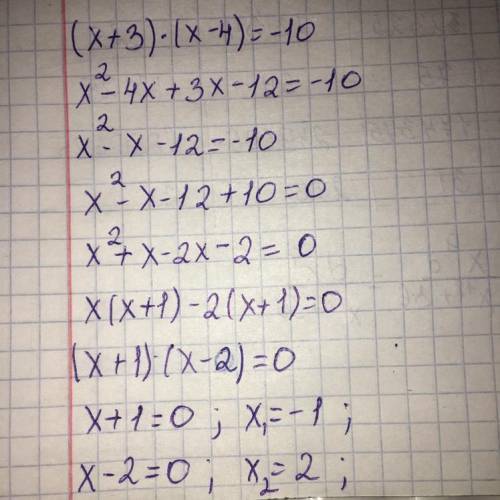 (x+3)·(x-4)=-10
x²-4x+3x-12=-10
x²-x-12=-10
x²-x-12+10=0
x²+x-2x-2=0
x(x+1)-2(x+1)=0
(x+1)·(x-2)=0
x+1=0; x₁=-1;
x-2=0; x₂=2;